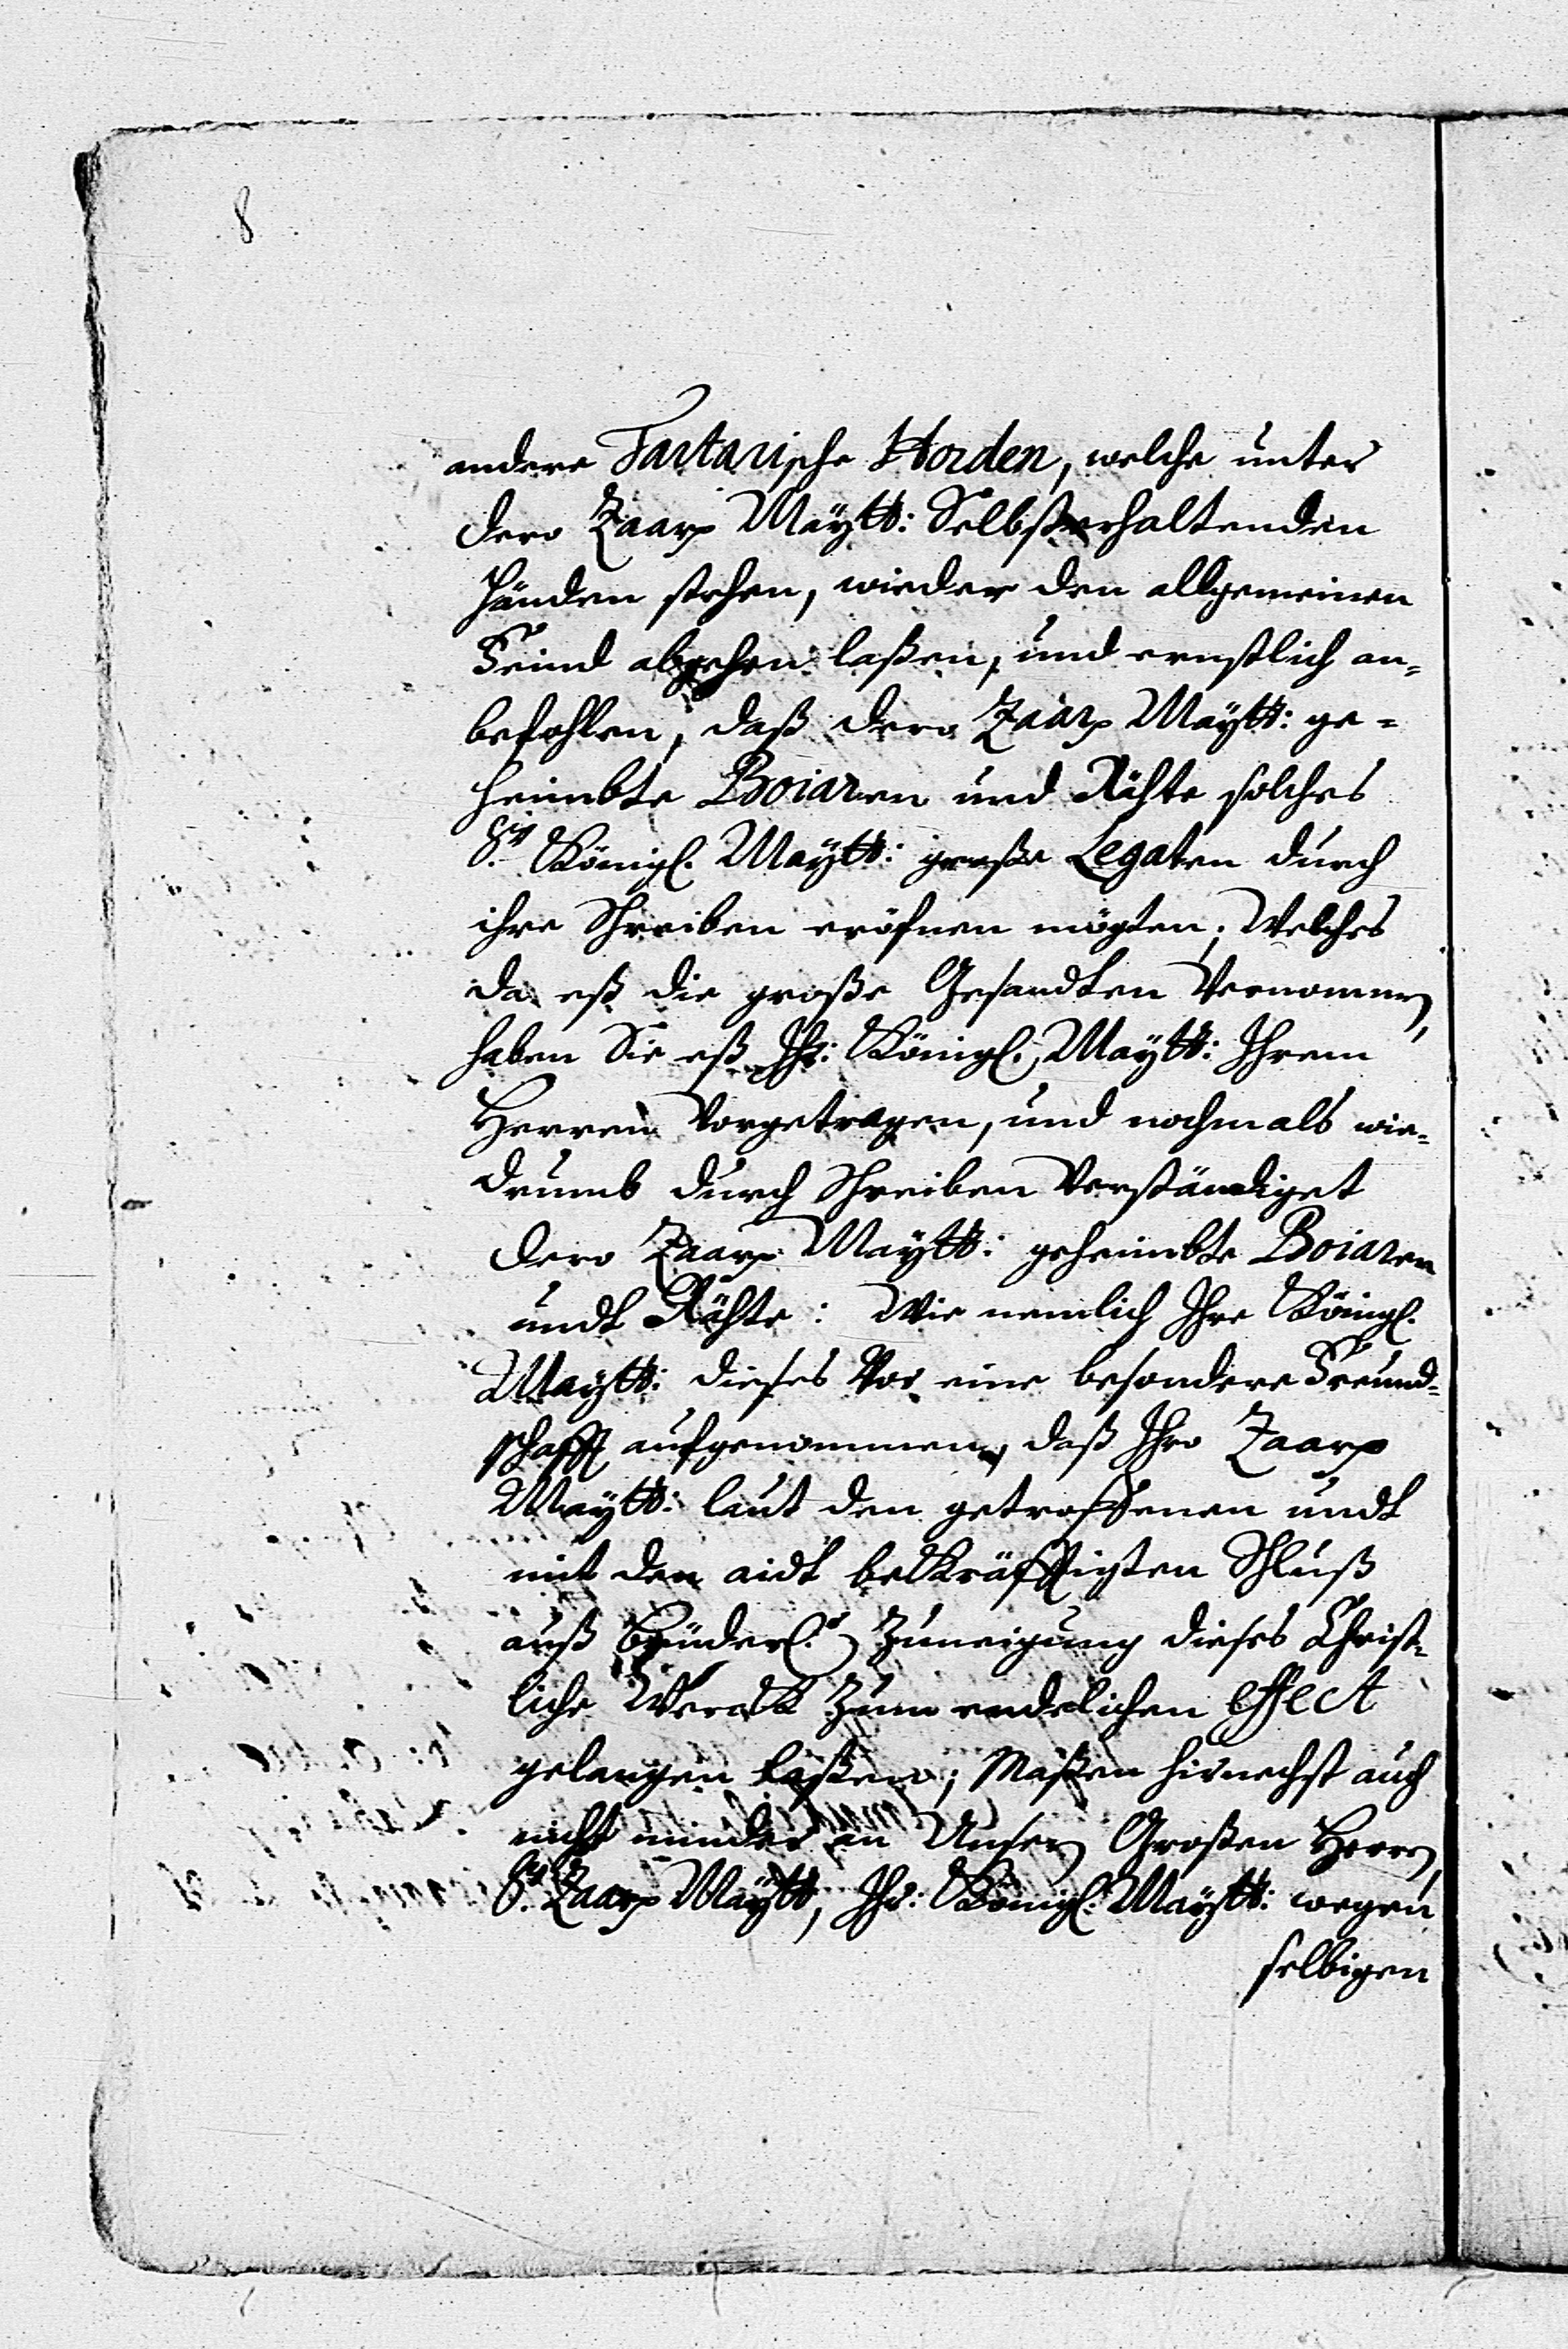 8
andere Tartarische Horden, welche unter
dero Zaarʃ Maÿtt: Selbsterhaltenden
Händen stehen, wieder den allgemeinen
Feind abgehen laßen, und ernstlich an-
befohlen, daß dero Zaarʃ Maÿtt: ge-
heimbte Boiaren und Rähte solches
Sr. Königl. Maÿtt: große Legaten durch
ihre Schreiben eröfnen mögten; Welches
da eß die große Gesandten Vernommen,
haben Sie eß Ihr: Königl. Maÿtt: Ihrem
Herren Vorgetragen, und nochmals wie-
drumb durch Schreiben Verständiget
dero Zaarʃ Maÿtt: geheimbte Boiaren
undt Rähte: Wie nemlich Ihre Königl.
Maÿtt: dieses Vor eine besondere Freund-
schafft aufgenommen, daß Ihro Zaarʃ
Maÿtt: laut den getroffenen undt
mit den aidt bekräfftigten Schluß
auß brüderl.r Zuneigung dieses Christ-
liche Werck zum endelichen effect
gelangen laßen; Maßen hirnechst auch
nicht minder an Unsern Großen Herrn,
Sr. Zaarʃ Maÿtt, Ihr: Königl. Maÿtt: wegen
selbigen